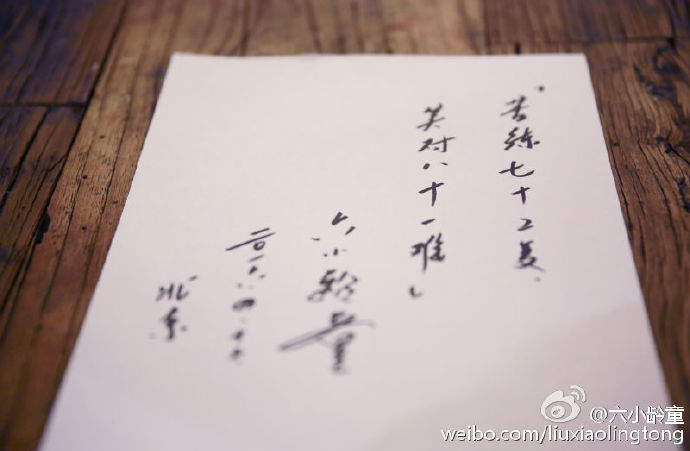 “苦练七十二变，
笑对八十一难”
六小龄童
二〇一六.四.十七
北京
@六小龄童
weibo.com/liuxiaolingtong